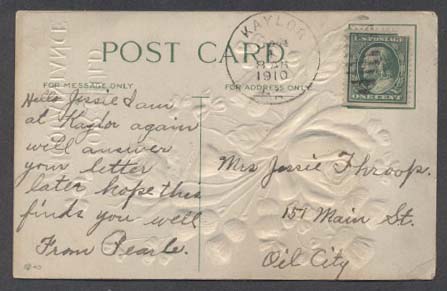 POST CARD
FOR MESSAGE ONLY
FOR ADDRESS ONLY
KAYLOR
MAR
1910
PA
U.S. POSTAGE
ONE CENT
Hello Jessie I am
at Kaylor again
will answer
your letter
later hope this
finds you well
From Pearle.
Mrs Jessie Throop.
151 Main St.
Oil City